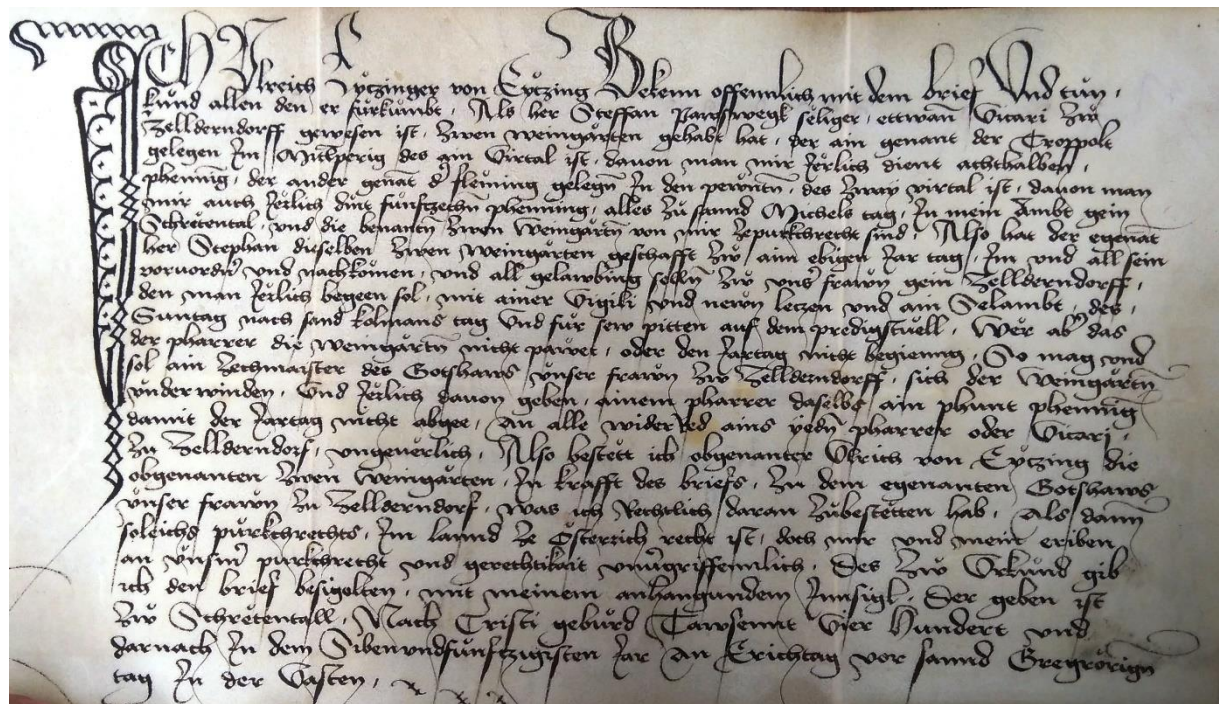 Ich Ulreich Eytzinger von Eytzing Bekenn offennlich mit dem brief Und tun,
kund allen den er fürkumbt, Als her Steffan seliger, ettwan̄ Vicari Zw̌
Zellderndorff gewesen ist, Zwen weingärten gehabt hat, der ain genant der Troppolt
gelegen Im Mitlperig des ain Virtal ist, dauon man mir Jërlich dient achthalben,
phennig, der ander genāt d' fleming gelegn̄ In den des Zway virtal ist, dauon man
mir auch Jërlich dint funfczehn̄ phenning, alles Zu sannd Michels tag, In mein Ambt gein
Schretental, vnd die benantn̄ Zwen Weingärtn̄ von mir Zepurkchrecht sind, Also hat der egenāt
her Stephan dieselben Zwen Weingärten geschafft Zw̌ aim ebigen Jar tag, Im und all sein
voruordn̄ und nachkömen, vnd all gelawbing selln̄ Zw̌ vns' frawn̄ gein Zellderndorff,
den man Jërlich begeen sol, mit ainer Vigili und newn̄ letzen vnd ain Selambt, des,
Suntag nach sand kolmans tag Und für sew pitten auf dem predigstuell, Wer ab' das
der pharrer die weingärtn̄ nicht pawet, oder den Jartag nicht begienng, So mag vnd
sol ain Zechmaister des Gotshaws vnser frawn̄ Zw̌ Zellderndorff, sich der Weingärtn̄
vnderwinden, Und Jërlich dauon geben, ainem pharrer daselbs ain phunt phennig
damit der Jartag nicht abgee, An alle widerRed ains yedn̄ pharrer oder Vicari,
Zu Zellderndorf, vngeuerlich, Also bestett ich obgenanter Ulrich von Eytzing die
obgenanten Zwen Weingärten, In krafft des briefs, Zu dem egenanten Gotshaws
vnser frawn̄ Zu Zellderndorf, was ich Rechtlich daran Zubestetten hab, Als dann
soleichs purkchrechts, Im lannd Ze Österrich recht ist, doch mir vnd mein eriben
an vnsm̄ purkchrecht vnd gerechtikait vnuergriffennlich, Des Zw̌ Urkund gib
ich den brief besigelten, mit meinem anhangundem Innsigl, Der geben ist
Zw̌ Schretentall, Nach Cristi geburd Tawsennt Vier Hundert vnd
darnach In dem Sibenvndfunftzigisten Jar An Erichtag vor sannd Gregrörign̄
tag In der Vasten,